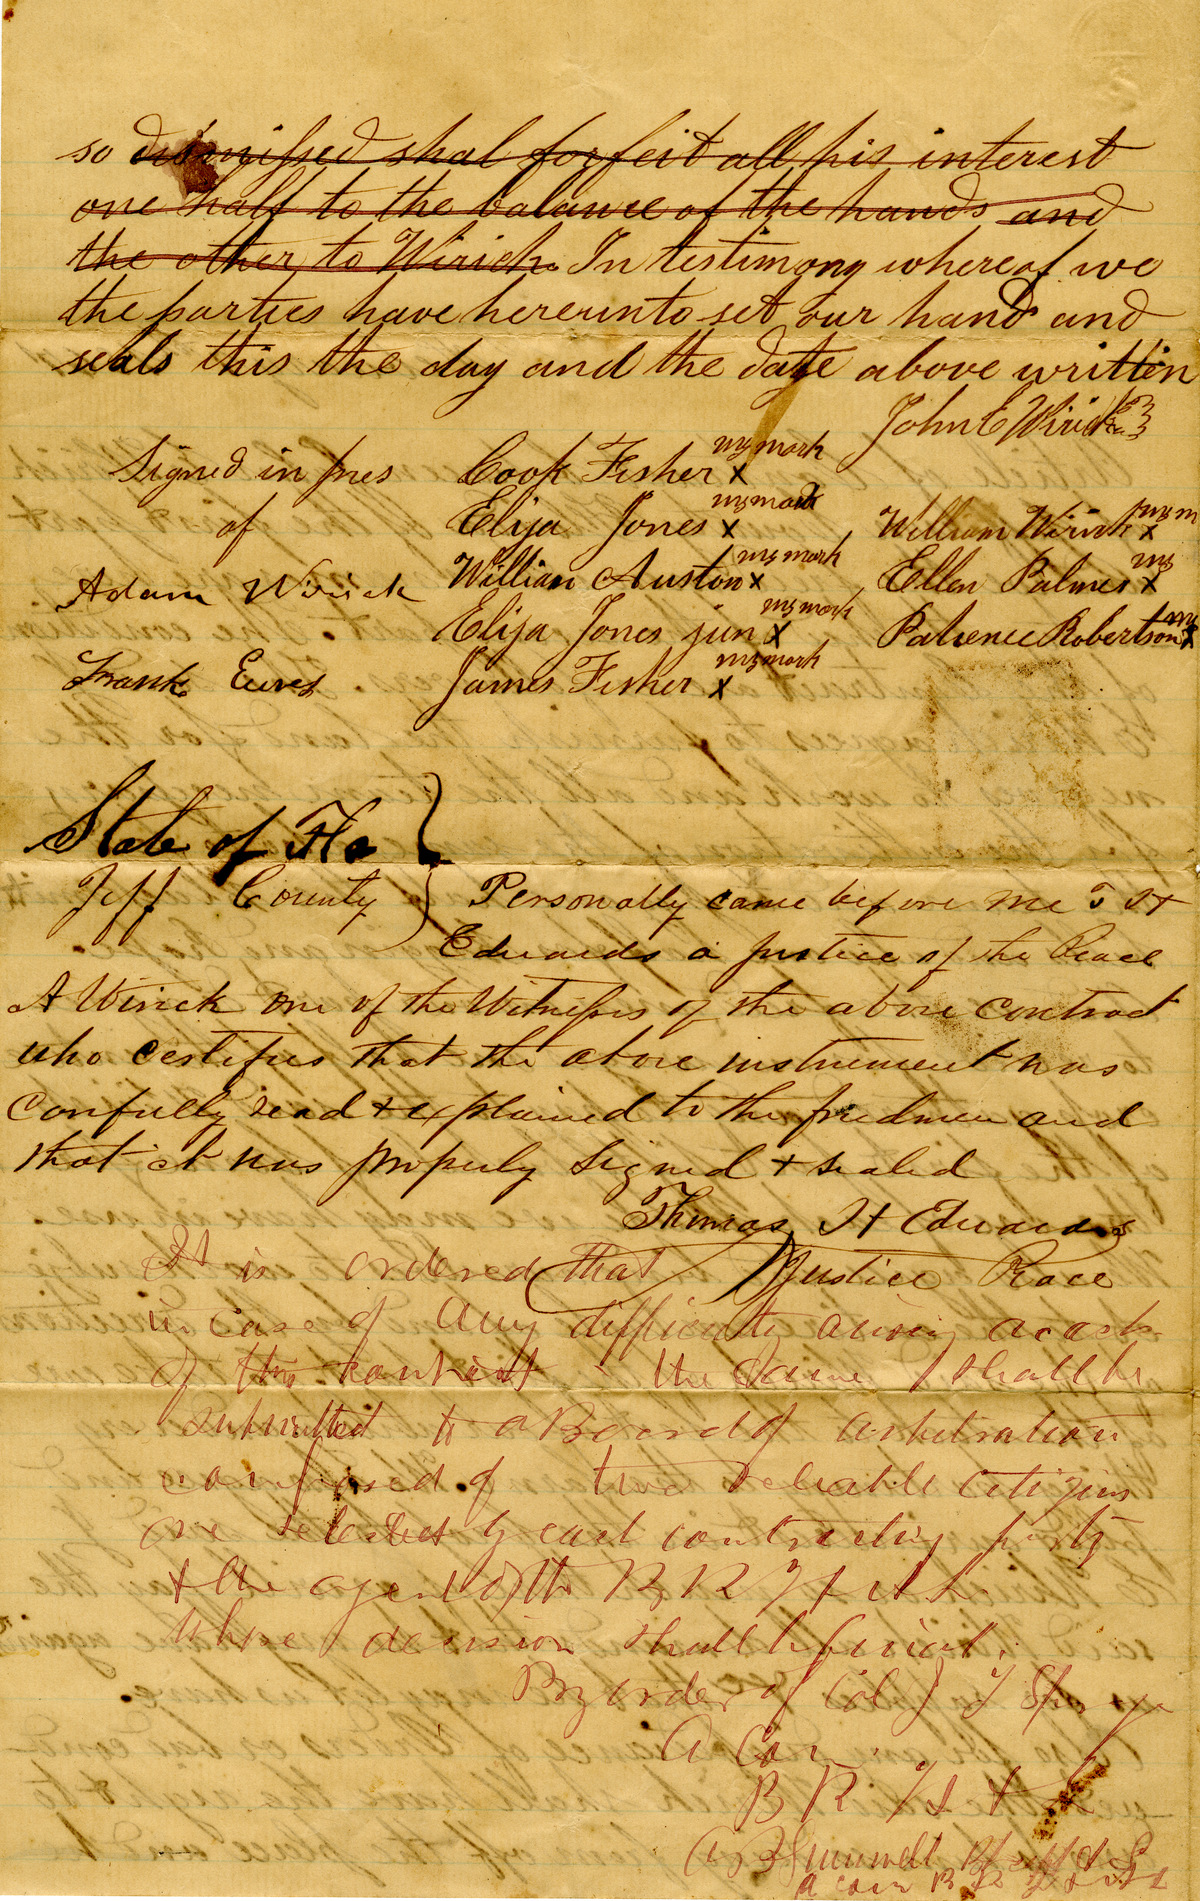 so dismissed shal forfeit all his interest
one half to the balance of the hands and
the other to Wirick. In testimony whereof we
the parties have hereunto set our hand and
seals this the day and the date above written
John C Wirick
Signed in pres
of
Adam Wirick
Frank
Cook Fisher my mark x
Elija Jones my mark x
William Auston my mark x
Elija Jones jun my mark x
James Fisher my mark x
William Wirick my m x
Ellen Palmer my x
Patience Robertson my x
State of Fla
Jeff County Personally came before me T H
Edwards a justice of the Peace
A Wirick one of the Witnesses of the above contract
who certifies that the above instrument was
carfully read & explained to the freedmen and
that it was properly signed & sealed
Thomas H Edwards
Justice Peace
It is ordered that
in case of any difficulty arising
of this contract the same shall be
submitted to a Board of arbitration
composed of two reliable citizens
one selected by each contracting party
& the agent of the B R F & A L
whose decision shall be final.
By order of Col J T
A Com
B R F & A L
A B
a com B R F & A L